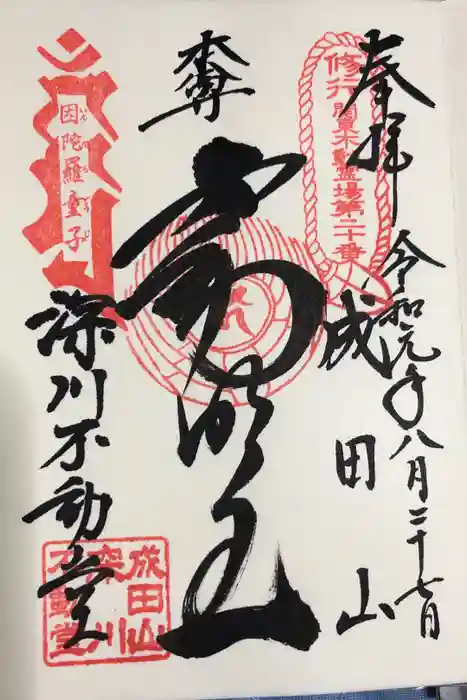 奉拝
令和元年八月二十七日
修行
関東不動霊場第二十番
成田山
本尊
不動明王
因陀羅童子
深川不動堂
成田山
深川
不動堂